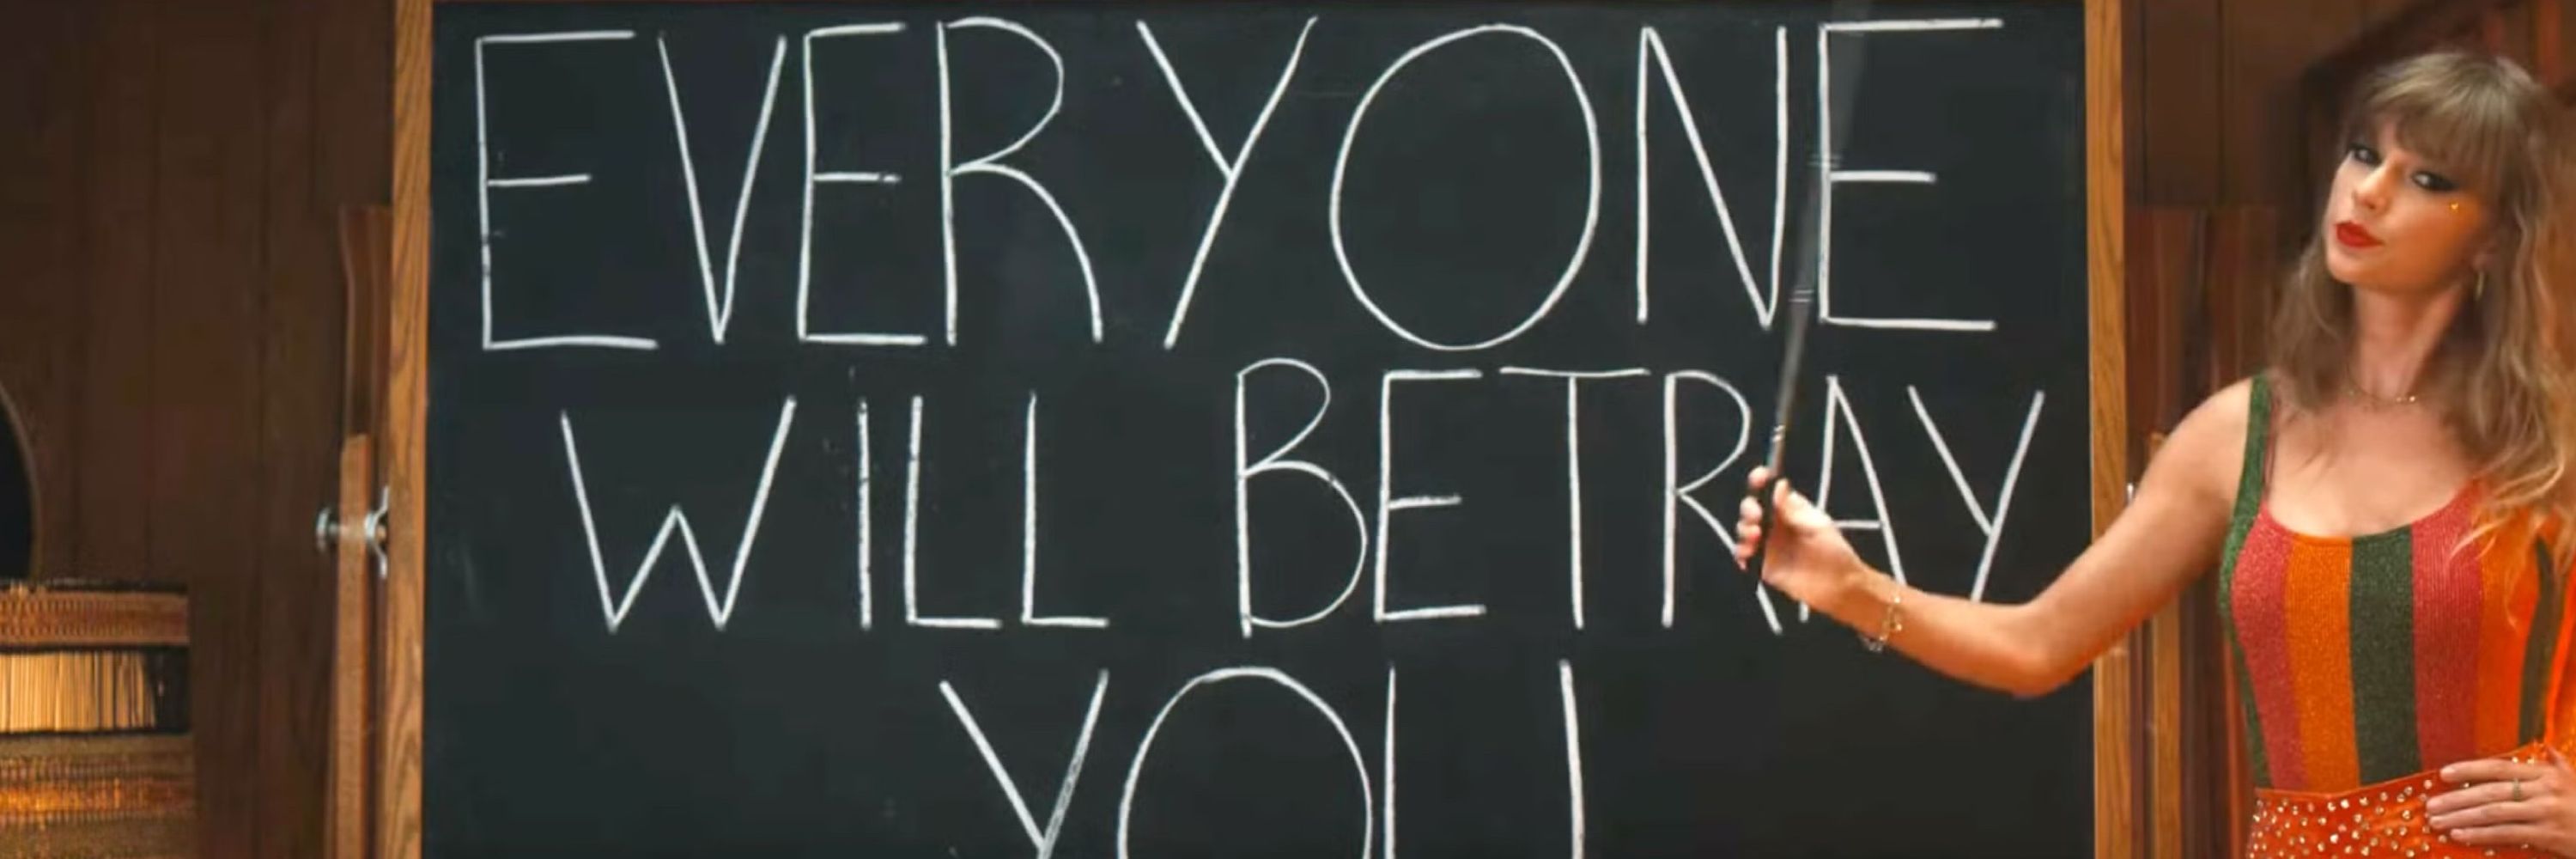 EVERYONE
WILL BETRAY
YOU